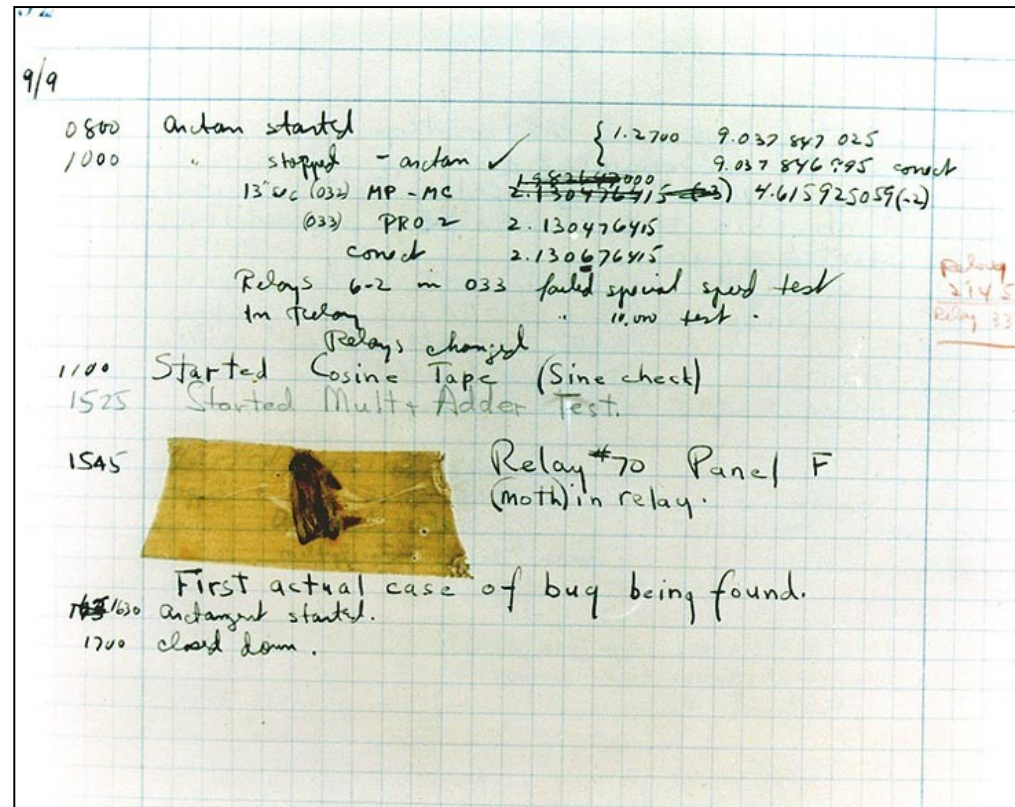 9/9
0800 arctan started { 1.2700 9.037 847 025
1000 " stopped - arctan ✓ 9.037 846 995 correct
13"uc (032) MP-MC 2.130476415 (-3) 4.615925059(-2)
(033) PRO 2 2.130476415
correct 2.130676415
Relays 6-2 in 033 failed special speed test
In Relay " 10,000 test.
Relay
2145
Relay 33
Relays changed
1100 Started Cosine Tape (Sine check)
1525 Started Mult+ Adder Test.
1545 Relay #70 Panel F
(moth) in relay.
First actual case of bug being found.
1630 arctangent started.
1700 closed down.